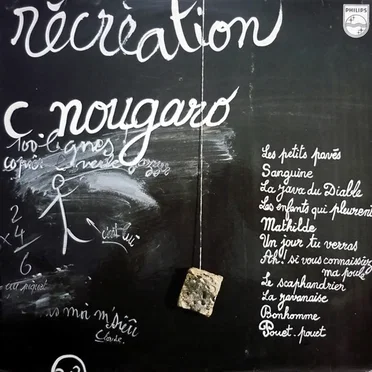 récréation
PHILIPS
C nougaro
100 lignes
Les petits pavés
Sanguine
La java du Diable
Les enfants qui pleurent
Mathilde
Un jour tu verras
Ah! si vous connaissiez
ma poule
Le scaphandrier
La javanaise
Bonhomme
Pouet-pouet
2
x 4
6
c'est lui
au piquet
moi m'sieu
Claude